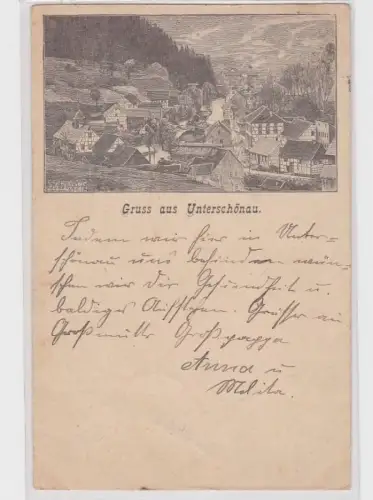 Gruss aus Unterschönau.
Indem wir hier in Unter=
schönau uns befinden wün=
schen wir dir Gesundheit u.
baldiges Aufstehen. Grüsse an
Großmutter Großpappa
Anna u
Melita.